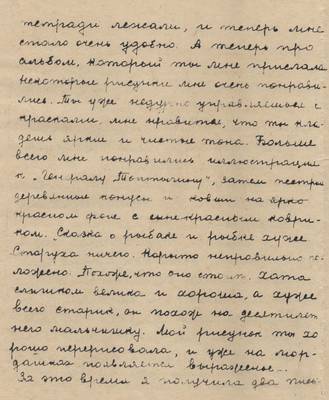 тетради лежали, и теперь мне
стало очень удобно. А теперь про
альбом, который ты мне прислала
некоторые рисунки мне очень понрави-
лись. Ты уже недурно управляешься с
красками, мне нравится, что ты кла-
дешь яркие и чистые тона. Больше
всего мне понравились иллюстрации
к „Генералу Топтыгину", затем пестрые
деревянные конусы и ковши на ярко
красном фоне с сине-красным коври-
ком. Сказка о рыбаке и рыбке хуже
Старуха ничего. Корыто неправильно по-
ложено. Похоже, что оно стоит. Хата
слишком велика и хороша, а хуже
всего старик, он похож на десятилет-
него мальчишку. Мой рисунок ты хо
рошо перерисовала, и уже на мор-
дашках появляется выражение...
За это время я получила два пись-